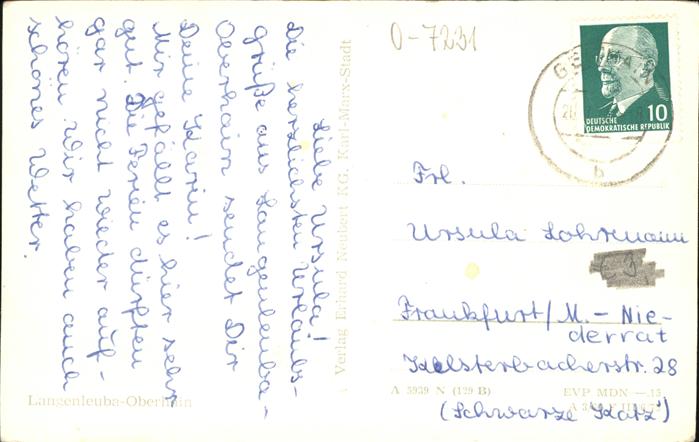 Liebe Ursula!
Die herzlichsten Urlaubs-
grüße aus Langenleuba-
Oberhain sendet Dir
Deine Karin!
Mir gefällt es hier sehr
gut. Die Ferien dürften
gar nicht wieder auf-
hören. Wir haben auch
schönes Wetter.
Langenleuba-Oberhain
Verlag Erhard Neubert KG, Karl-Marx-Stadt
O-7231
10
DEUTSCHE
DEMOKRATISCHE REPUBLIK
b
Frl.
Ursula Lohrmann
Frankfurt/M.-Nie-
derrat
Kelsterbacherstr. 28
(Schwarze Katz')
A 5939 N (129 B)
EVP MDN —.15